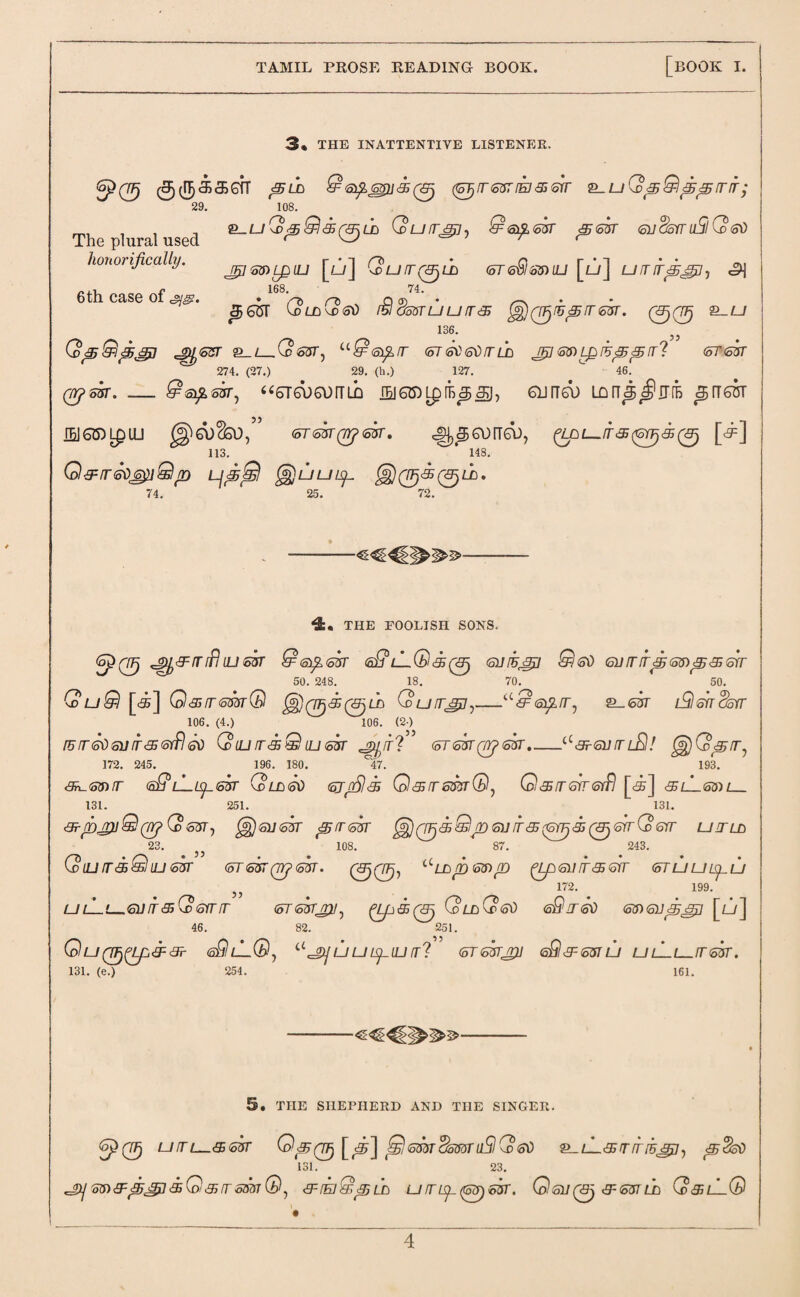 TAMIL PROSE READING BOOK. [BOOK I.
3. THE INATTENTIVE LISTENER.
ஒரு குருக்கள் தம் சீஷனுக்கு ஞானங்கள் உபதேசித்தார்;
29. 108.
The plural used honorifically.
6th case of அது.
உபதேசிக்கும் போது, சீஷன் தன் வளையிலே
நுழைய [ப்] போகும் எலியை [ப்] பார்த்து, அ
168. 74.
தன் மேலே நினைப்பாக இருந்தான். குரு உப
136.
தேசித்து ஆன உடனே, “சீஷா எல்லாம் நுழைந்ததா?” என்
274. (27.) 29. (h.) 127. 46.
றான். — சீஷன், “எல்லாம் நுழைந்தது, வால் மாத்திரந் தான்
நுழைய இல்லை,” என்றான். ஆதலால், மூடர்களுக்கு [ச்]
113. 148.
சொல்லுகிற புத்தி இப்படி இருக்கும்.
74. 25. 72.
4. THE FOOLISH SONS.
ஒரு ஆசாரியன் சீஷன் வீட்டுக்கு வந்து சில வார்த்தைகள்
50. 248. 18. 70. 50.
பேசி [க்] கொண்டு இருக்கும் போது,—“சீஷா, உன் பிள்ளை
106. (4.) 106. (2.)
நால்வர்களில் யோக்கியன் ஆர்?” என்றான்.—“சுவாமி! இதோ,
172. 245. 196. 180. 47. 193.
கூரை வீட்டின் மேல் ஏறிக் கொண்டு, கொள்ளி [க்] கட்டை
131. 251. 131.
சுற்றுகிறானே, இவன் தான் இருக்கிறவர்களுக்குள்ளே பரம
23. 108. 87. 243.
யோக்கியன்” என்றான். குரு, “மற்றை மூவர்கள் எப்படிப்
172. 199.
பட்டவர்களோ” என்று, மூக்கு மேலே விரல் வைத்து [ப்]
46. 82. 251.
பெருமூச்சு விட்டு, “அப்படியா?” என்று விசனப் பட்டான்.
131. (e.) 254. 161.
5. THE SHEPHERD AND THE SINGER.
ஒரு பாடகன் தெரு [த்] திண்ணையிலே உட்கார்ந்து, தலை
131. 23.
அசைத்துக்கொண்டு, சங்கீதம் பாடினான். வெகு சனம் கேட்டு
4